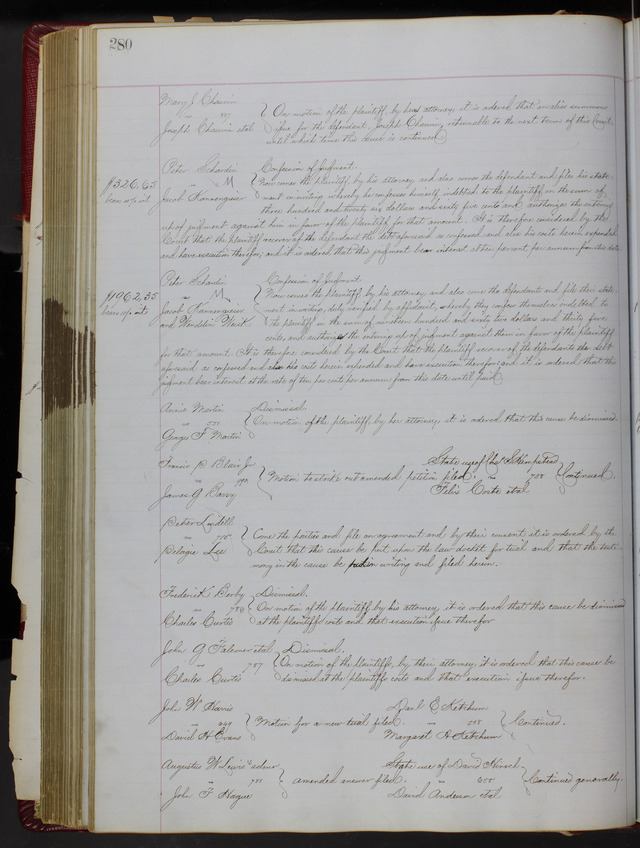 280
Mary J. Chauvin
vs 
Joseph Chauvin et al
On motion of the plaintiff, by her attorney, it is ordered that an alias summons
issue for the defendant, Joseph Chauvin, returnable to the next term of this Court,
until which time this cause is continued.
$326.65
Peter Schardin
vs
Jacob
Confession of Judgment.
Now comes the plaintiff by his attorney and also comes the defendant and files his state-
ment in writing whereby he confesses himself indebted to the plaintiff in the sum of
three hundred and twenty six dollars and sixty five cents and authorizes the entering
up of judgment against him in favor of the plaintiff for that amount. It is therefore considered by the
Court that the plaintiff recover of the defendant the debt aforesaid as confessed and also his costs herein expended
and have execution therefor; and it is ordered that this judgment bear interest at ten per cent per annum from this date
$1962.35
Peter Schardin
vs
Jacob
and Wendelin
Confession of Judgment.
Now comes the plaintiff by his attorney and also come the defendants and file their state-
ment in writing, duly verified by affidavit, whereby they confess themselves indebted to
the plaintiff in the sum of nineteen hundred and sixty two dollars and thirty five
cents, and authorizes the entering up of judgment against them in favor of the plaintiff
for that amount. It is therefore considered by the Court that the plaintiff recover of the defendants the debt
aforesaid as confessed and also his costs herein expended and have execution therefor; and it is ordered that this
judgment bear interest at the rate of ten per cent per annum from this date until paid.
Annie Martin
vs
George F Martin
Dismissed
On motion of the plaintiff, by her attorney, it is ordered that this cause be dismissed.
Francis P. Blair Jr
vs
James G Barry
Motion to strike out amended petition filed.
State use of
vs 788
Felix Coste et al
Continued.
Peter Lindell
vs 775
Pelagie Lee
Come the parties and file an agreement and by their consent it is ordered by the
Court that this cause be put upon the law docket for trial and that the testi-
mony in the cause be put in writing and filed herein.
Frederick Berby
vs 786
Charles Curtis
Dismissed.
On motion of the plaintiff, by his attorney, it is ordered that this cause be dismissed
at the plaintiffs costs and that execution issue therefor
John G Falconer et al
vs 787
Charles Curtis
Dismissed.
On motion of the plaintiffs, by their attorney, it is ordered that this cause be
dismissed at the plaintiffs costs and that execution issue therefor.
John W Harris
vs
David H Evans
Motion for a new trial filed.
Danl E Ketchum
vs
Margaret H Ketchum
Continued.
Augustus W Lewis
vs
John F Hague
amended answer filed.
State use of David Hirsch
vs
David Anderson et al
Continued generally.